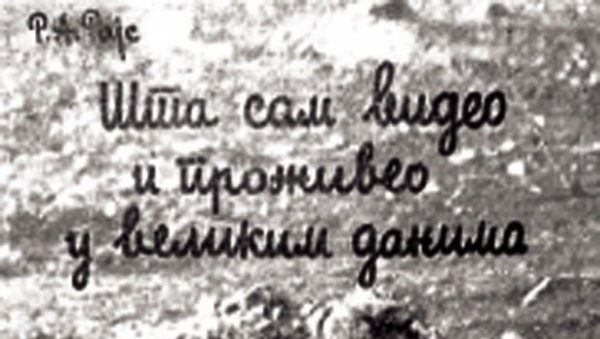 Р. А. Рајс
Шта сам видео
и проживео
у великим данима